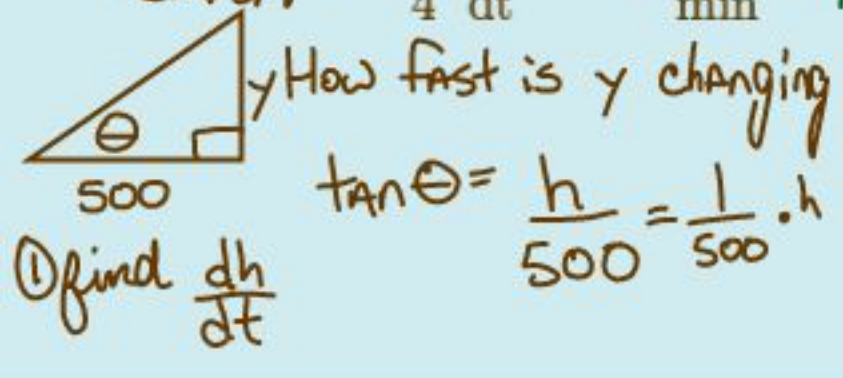 4 dt min
y How fast is y changing
θ
500
tan θ = h/500 = 1/500 · h
① find dh/dt